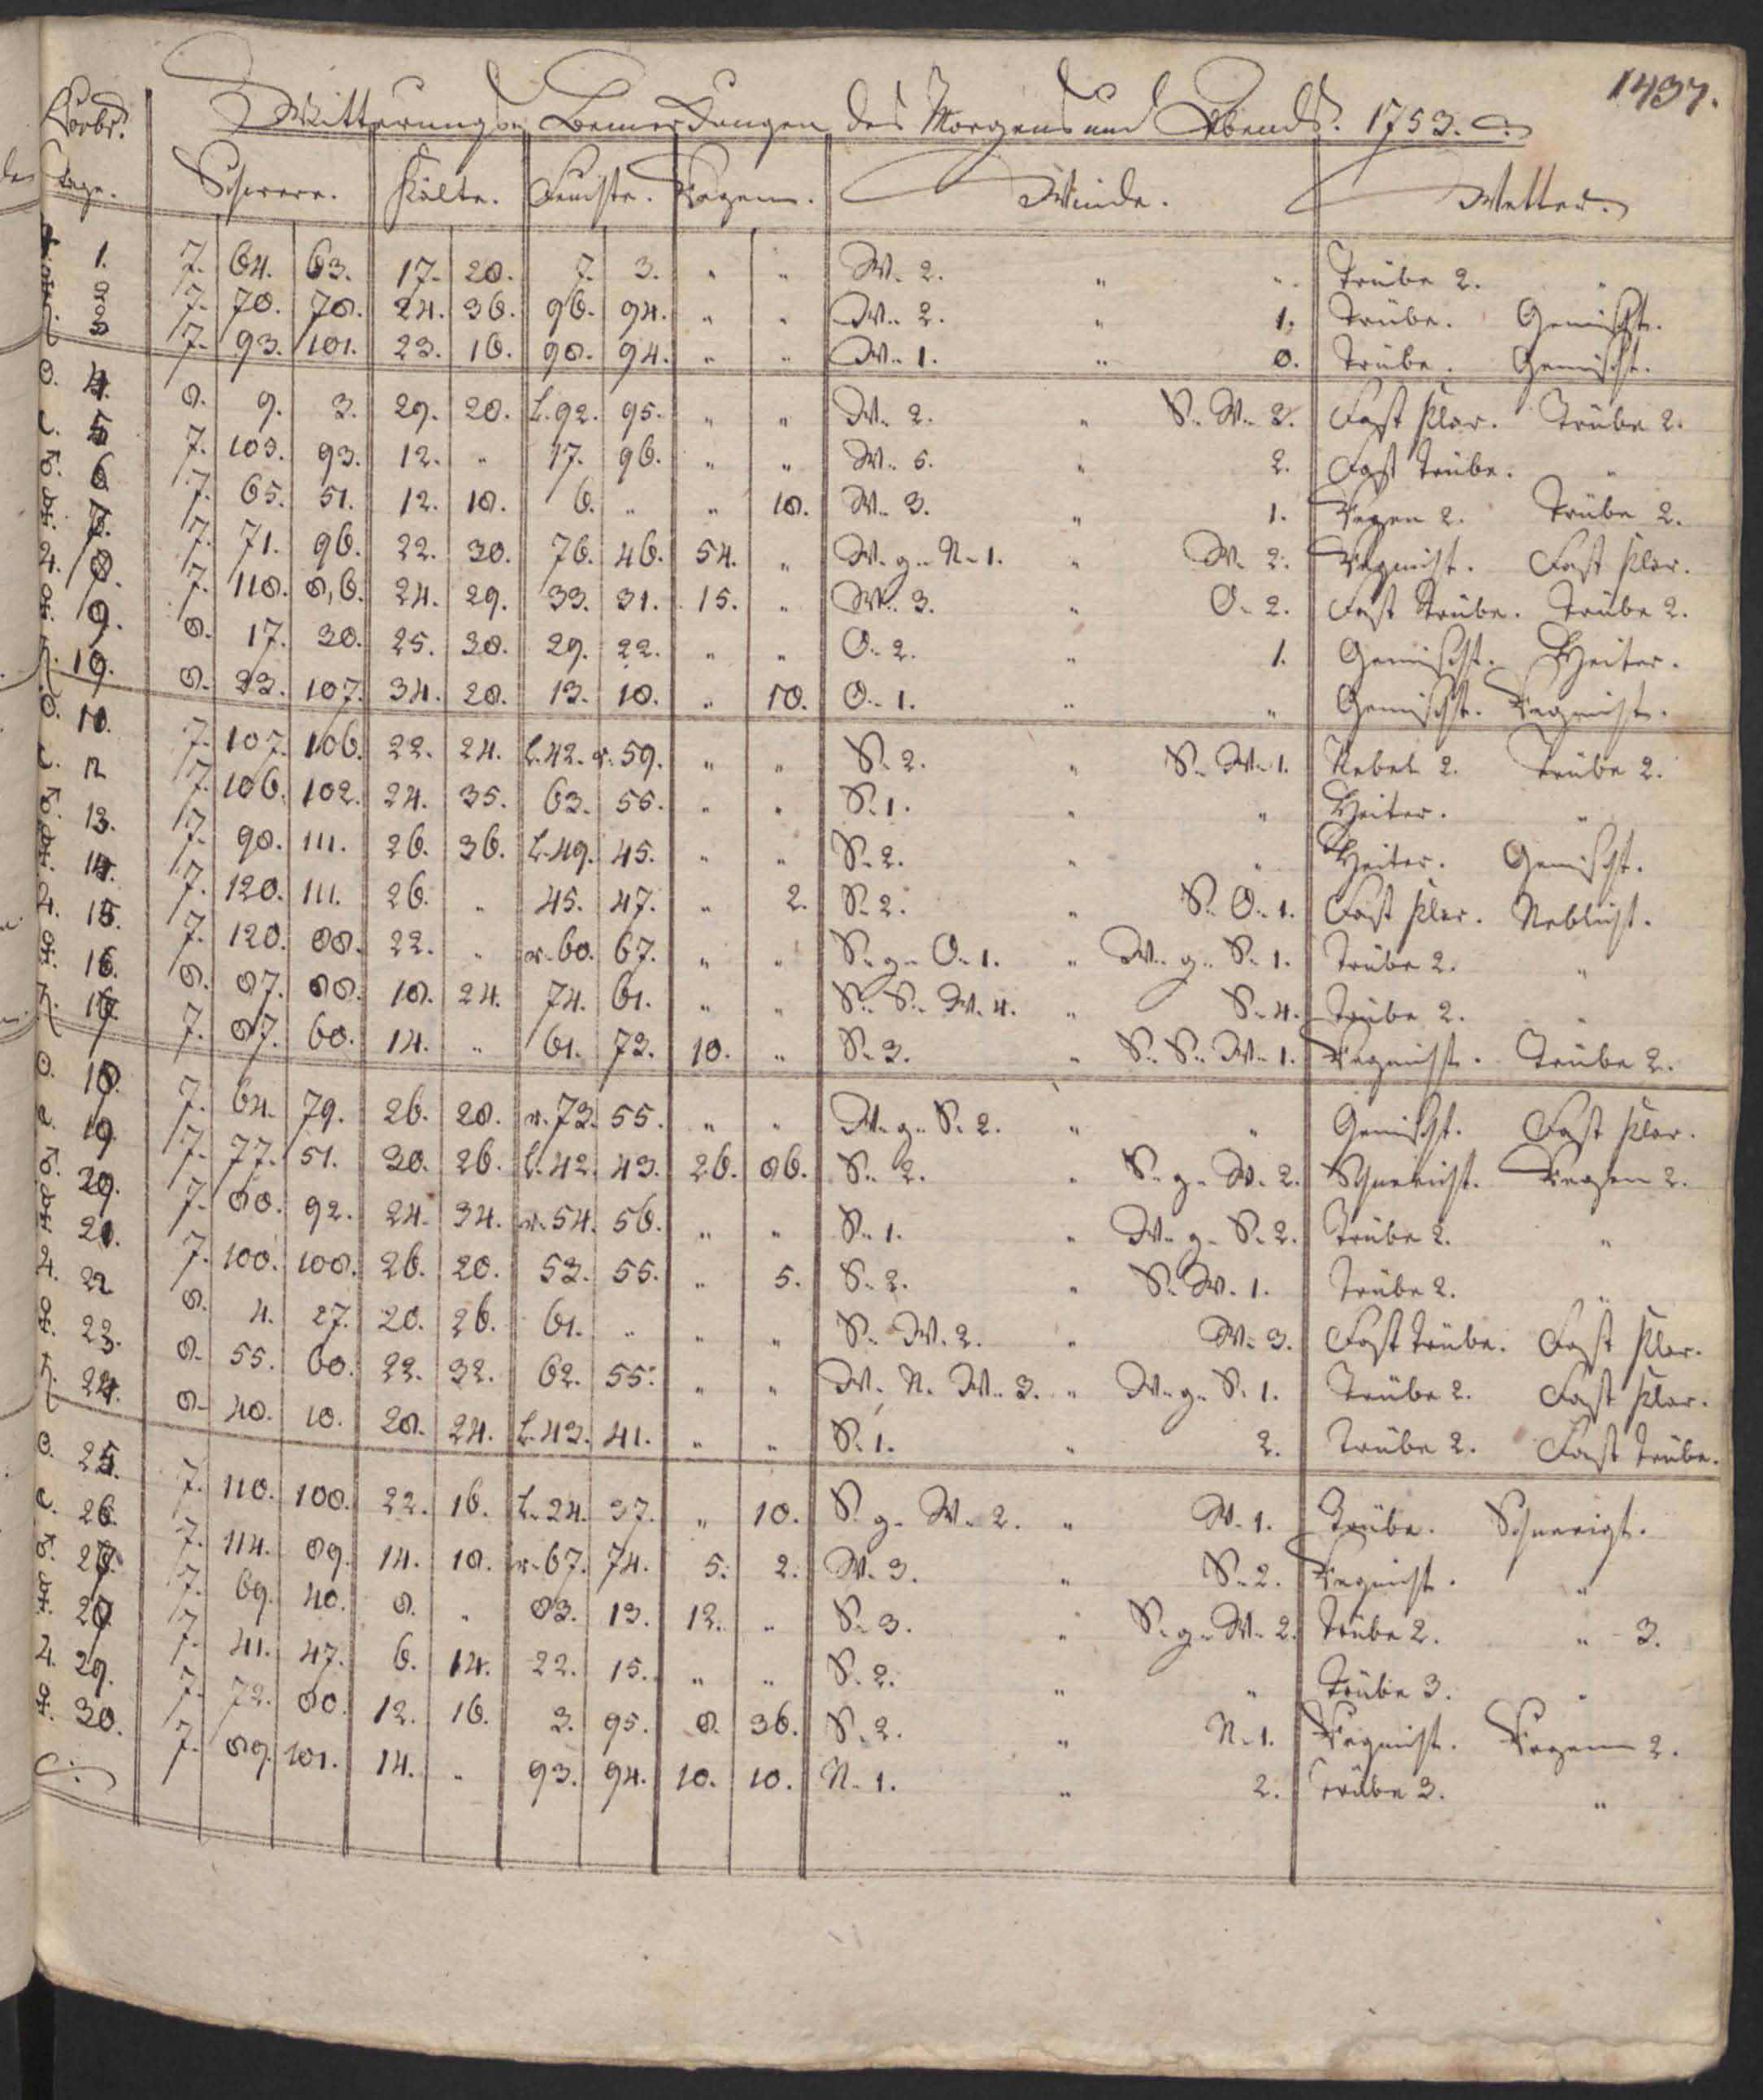 1437.
Novbr. Witterungs- Bemerckungen des Morgens und Abends. 1753.
Tage. Schwere. Kälte. Feuchte. Regen. Winde. Wetter.
♃. 1. 7. 64. 63. 17. 20. 7. 3. " " W. 2. " " Trübe 2. "
♀. 2. 7. 70. 78. 24. 36. 96. 94. " " W. 2. " 1. Trübe. Gemischt.
♄. 3. 7. 93. 101. 23. 16. 98. 94. " " W. 1. " 0. Trübe. Gemischt.
☉. 4. 8. 9. 3. 29. 20. L. 92. 95. " " W. 2. " S. W. 2. Fast klar. Trübe 2.
☾. 5. 7. 103. 93. 12. " 17. 96. " " W. 5. " 2. Fast trübe. "
♂. 6. 7. 65. 51. 12. 18. 6. " " 18. W. 3. " 1. Regen 2. Trübe 2.
☿. 7. 7. 71. 96. 22. 30. 76. 46. 54. " W. g. N. 1. " W. 2. Regnicht. Fast klar.
♃. 8. 7. 118. 8,6. 24. 29. 33. 31. 15. " W. 3. " O. 2. Fast trübe. Trübe 2.
♀. 9. 8. 17. 30. 25. 30. 29. 22. " " O. 2. " 1. Gemischt. Heiter.
♄. 10. 8. 23. 107. 34. 28. 13. 10. " 10. O. 1. " " Gemischt. Regnicht.
☉. 11. 7. 107. 106. 22. 24. L. 42. r. 59. " " S. 2. " S. W. 1. Nebel 2. Trübe 2.
☾. 12. 7. 106. 102. 24. 35. 63. 55. " " S. 1. " " Heiter. "
♂. 13. 7. 98. 111. 26. 36. L. 49. 45. " " S. 2. " " Heiter. Gemischt.
☿. 14. 7. 120. 111. 26. " 45. 47. " 2. S. 2. " S. O. 1. Fast klar. Neblicht.
♃. 15. 7. 120. 88. 22. " r. 60. 67. " " S. g. O. 1. " W. g. S. 1. Trübe 2. "
♀. 16. 8. 87. 88. 18. 24. 74. 61. " " S. S. W. 4. " S. 4. Trübe 2. "
♄. 17. 7. 87. 60. 14. " 61. 73. 10. " S. 3. " S. S. W. 1. Regnicht. Trübe 2.
☉. 18. 7. 64. 79. 26. 28. r. 73. 55. " " W. g. S. 2. " " Gemischt. Fast klar.
☾. 19. 7. 77. 51. 30. 26. L. 42. 43. 26. 86. S. 2. " S. g. W. 2. Schneeicht. Regen 2.
♂. 20. 7. 80. 92. 24. 34. r. 54. 56. " " S. 1. " W. g. S. 2. Trübe 2. "
☿. 21. 7. 100. 108. 26. 20. 53. 55. " 5. S. 2. " S. W. 1. Trübe 2. "
♃. 22 8. 4. 27. 20. 26. 61. " " " S. W. 2. " W. 3. Fast trübe. Fast klar.
♀. 23. 8. 55. 60. 22. 32. 62. 55. " " W. N. W. 3. " W. g. S. 1. Trübe 2. Fast klar.
♄. 24. 8. 40. 10. 28. 24. L. 43. 41. " " S. 1. " 2. Trübe 2. Fast trübe.
☉. 25. 7. 110. 100. 22. 16. L. 24. 37. " 10. S. g. W. 2. " W. 1. Trübe. Schneeigt.
☾. 26. 7. 114. 89. 14. 18. r. 67. 74. 5. 2. W. 3. " S. 2. Regnicht. "
♂. 27. 7. 69. 40. 8. " 83. 13. 12. " S. 3. " S. g. W. 2. Trübe 2. " 3.
☿. 28. 7. 41. 47. 6. 14. 22. 15. " " S. 2. " " Trübe 3. "
♃. 29. 7. 72. 80. 12. 16. 3. 95. 8. 36. S. 2. " N. 1. Regnicht. Regen 2.
♀. 30. 7. 89. 101. 14. " 93. 94. 10. 10. N. 1. " 2. Trübe 3. "